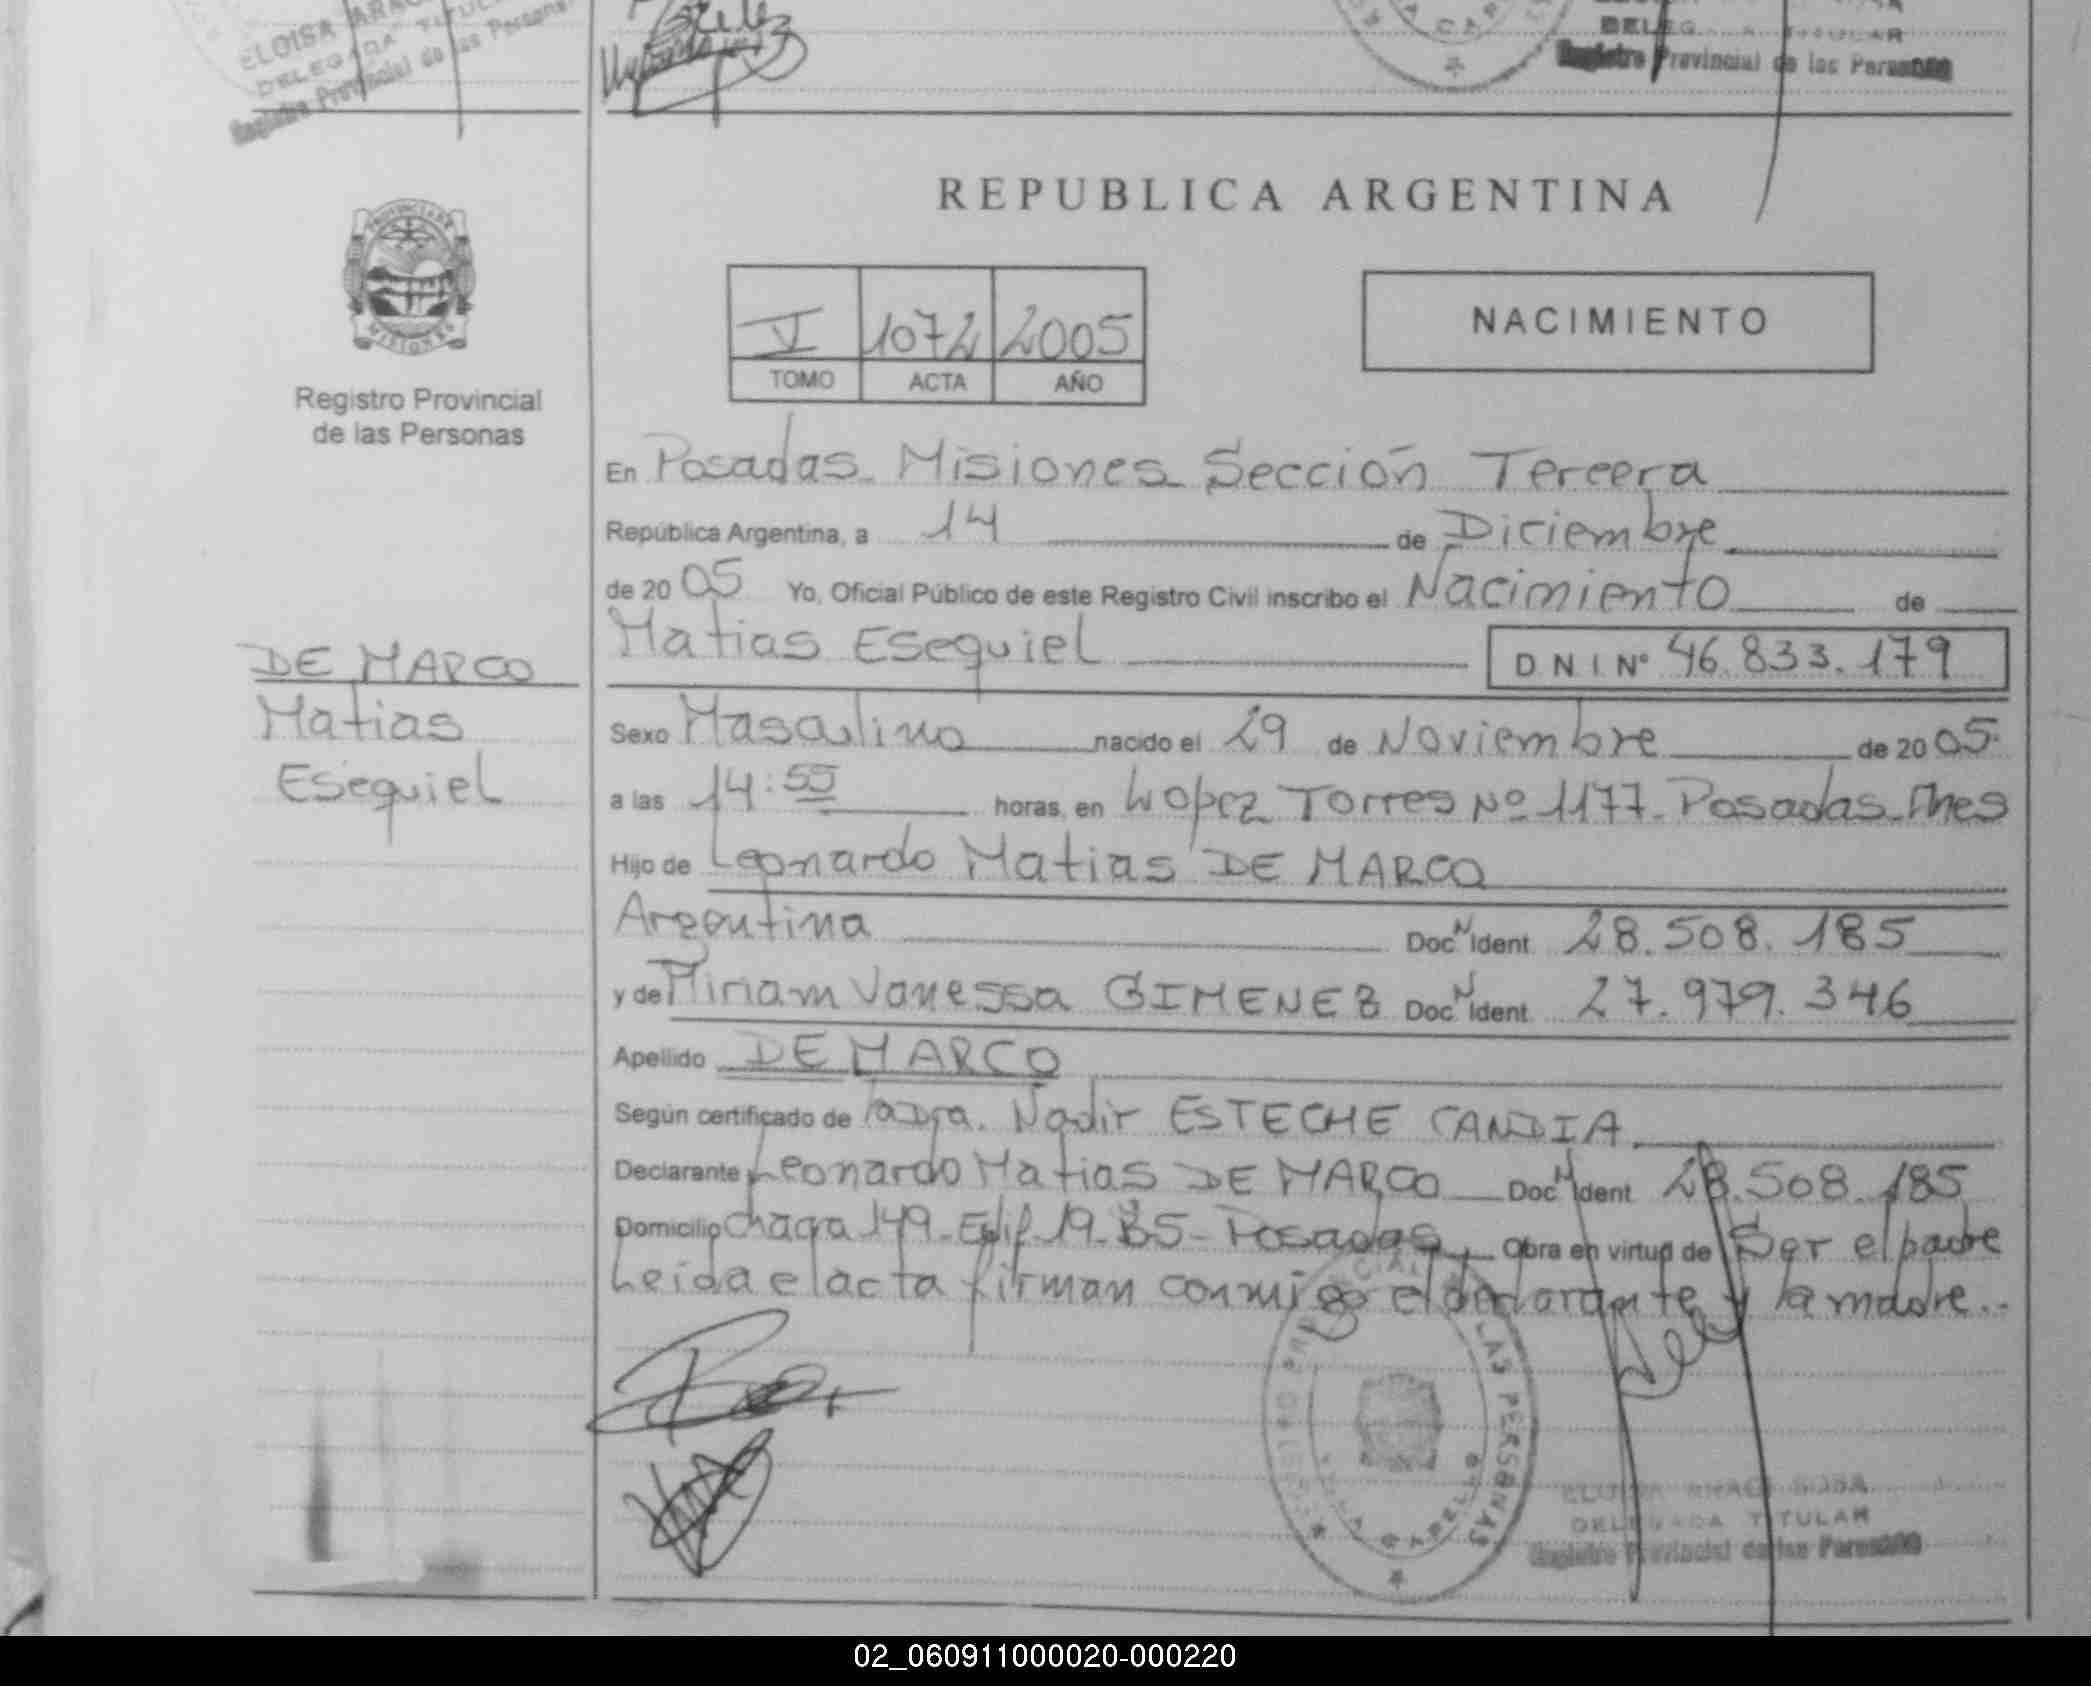 ELOISA ARA
DELEGADA TITUL
Registro Provincial de las Personas
DELEG A TITULAR
Registro Provincial de las Personas
REPUBLICA ARGENTINA
PROVINCIA DE
MISIONES
Registro Provincial
de las Personas
V 1072 2005
TOMO ACTA AÑO
NACIMIENTO
En Posadas Misiones Sección Tercera
República Argentina, a 14 de Diciembre
de 20 05 Yo, Oficial Público de este Registro Civil inscribo el Nacimiento de
Matias Esequiel D N I Nº 46.833.179
DE MARCO
Matias
Esequiel
Sexo Masculino nacido el 29 de Noviembre de 20 05
a las 14:55 horas, en Lopez Torres Nº 1177. Posadas Mnes
Hijo de Leonardo Matias DE MARCO
Argentina Doc N Ident 28.508.185
y de Miriam Vanessa GIMENEZ Doc N Ident 27.979.346
Apellido DE MARCO
Según certificado de la Dra. Nadir ESTECHE CANDIA
Declarante Leonardo Matias DE MARCO Doc N Ident 28.508.185
Domicilio Chaga 149 - Edif 19 - B5 - Posadas Obra en virtud de Ser el padre
Leida el acta firman conmigo el declarante y la madre..
LAS PERSONAS
ELOISA ARACI SOSA
DELEGADA TITULAR
Registro Provincial de las Personas
02_060911000020-000220